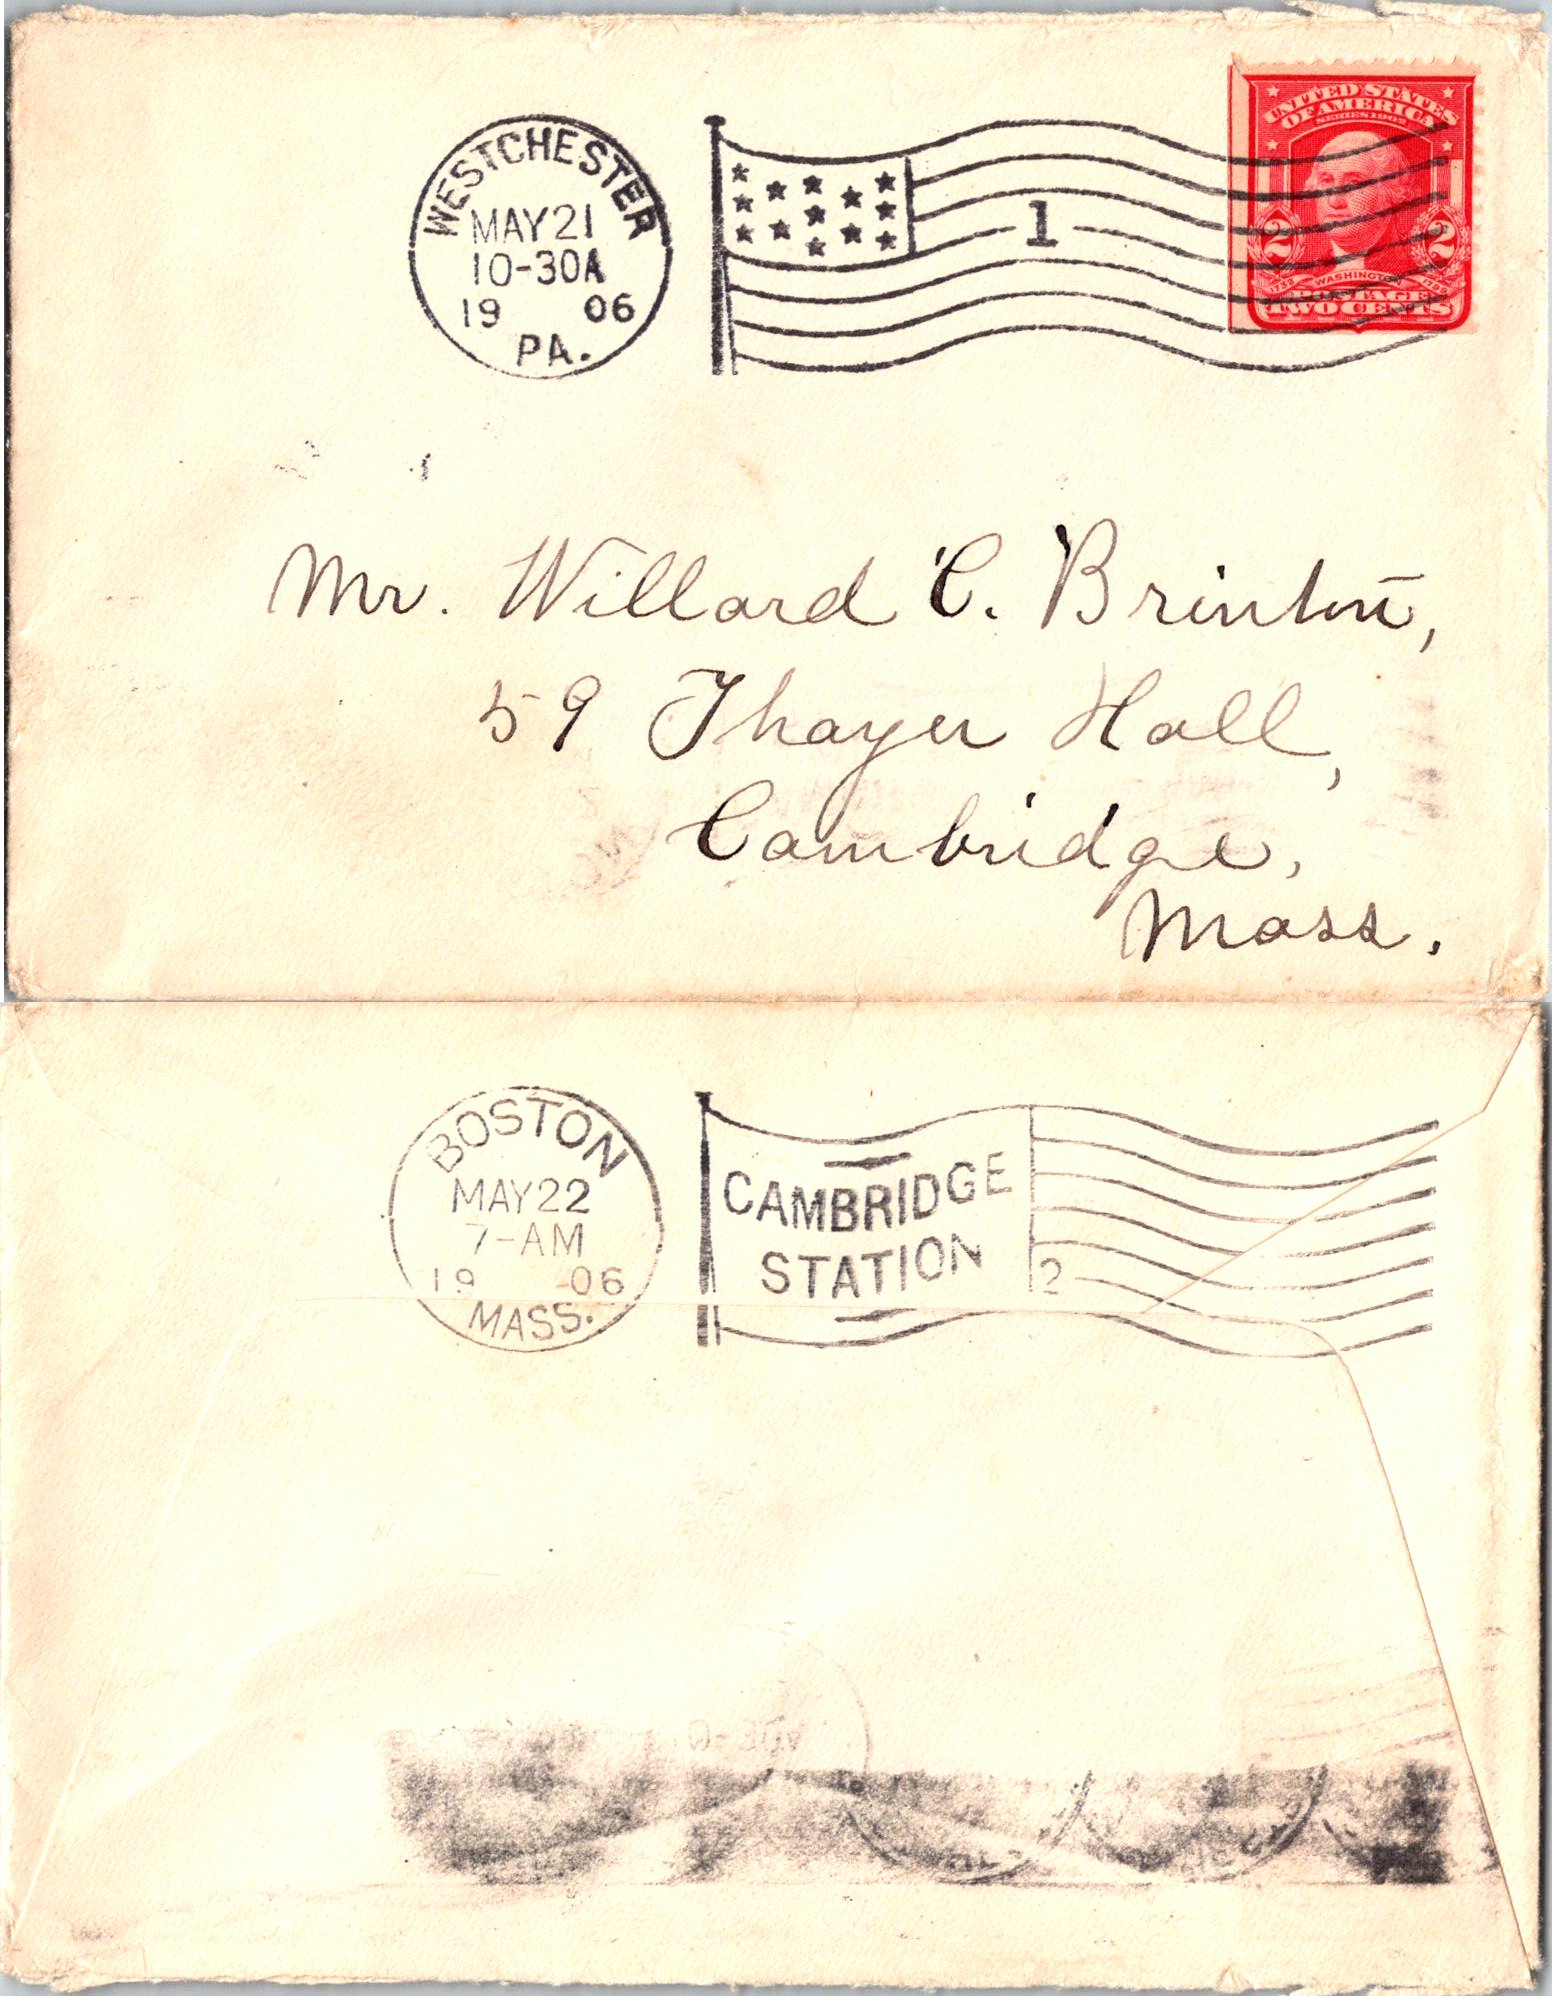 WESTCHESTER
MAY 21
10-30A
19 06
PA.
1
UNITED STATES
OF AMERICA
SERIES 1902
2 2
1732 WASHINGTON 1799
POSTAGE
TWO CENTS
Mr. Willard C. Brinton,
59 Thayer Hall,
Cambridge,
Mass.
BOSTON
MAY 22
7-AM
19 06
MASS.
CAMBRIDGE
STATION
2